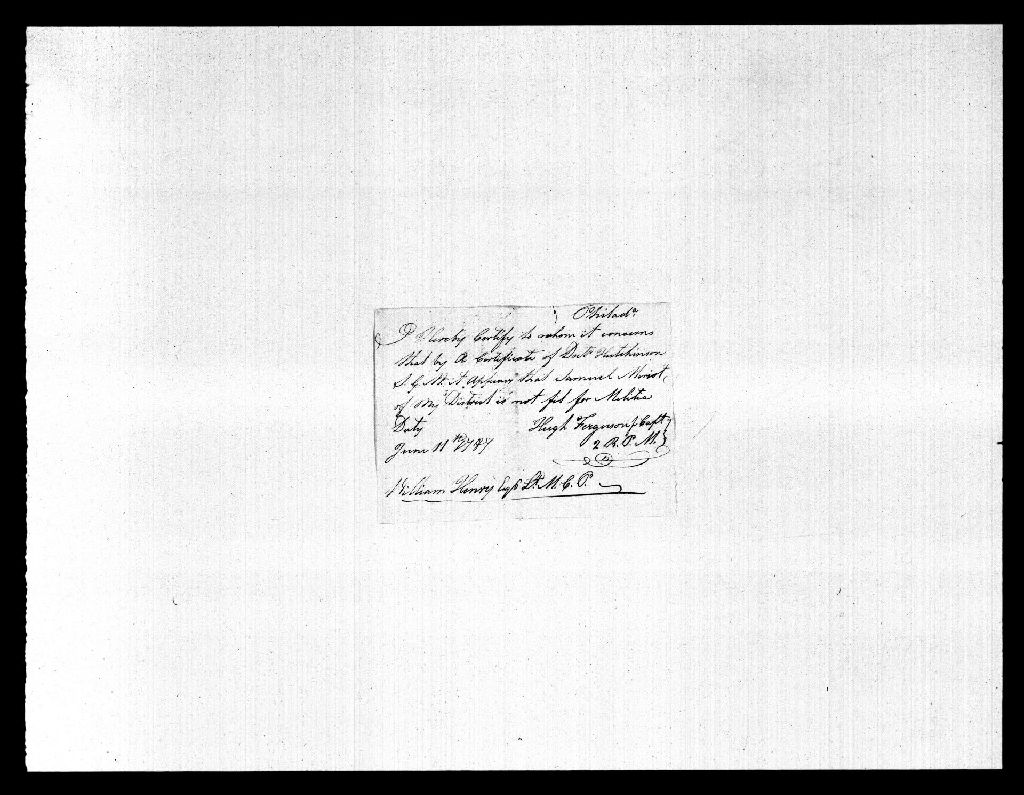 Philada
I Hereby Certify to whom it concerns
that by A Certificate of Doctr Hutchinson
S. G. M. it Appears that Samuel
of My District is not fit for Militia
Duty Hugh Ferguson Capt
June 11th 1787 2 R. P. M.
William Henry Esqr Lt. M. C. P.